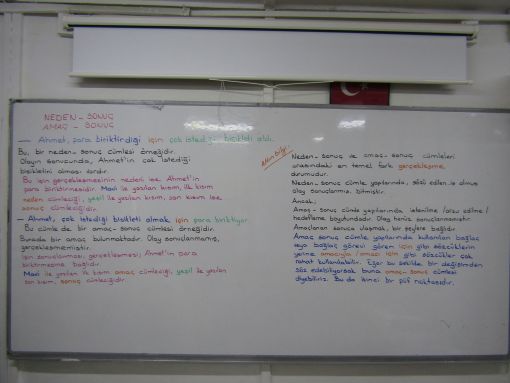 NEDEN - SONUÇ
AMAÇ - SONUÇ
— Ahmet, para biriktirdiği için çok istediği bisikleti aldı.
Bu, bir neden-sonuç cümlesi örneğidir.
Olayın sonucunda, Ahmet'in çok istediği
bisikletini alması vardır.
Bu işin gerçekleşmesinin nedeni ise Ahmet'in
para biriktirmesidir. Mavi ile yazılan kısım, ilk kısım
neden cümleciği, yeşil ile yazılan, son kısım ise
sonuç cümleciğidir.
— Ahmet, çok istediği bisikleti almak için para biriktiriyor.
Bu cümle de bir amaç-sonuç cümlesi örneğidir.
Burada bir amaç bulunmaktadır. Olay sonuçlanmamış,
gerçekleşmemiştir.
İşin sonuçlanması, gerçekleşmesi, Ahmet'in para
biriktirmesine bağlıdır.
Mavi ile yazılan ilk kısım amaç cümleciği, yeşil ile yazılan
son kısım, sonuç cümleciğidir.
Neden-sonuç ile amaç-sonuç cümleleri
arasındaki en temel fark gerçekleşme
durumudur.
Neden-sonuç cümle yapılarında, sözü edilen iş olmuş
olay sonuçlanmış, bitmiştir.
Ancak;
Amaç-sonuç cümle yapılarında istenilme / arzu edilme /
hedefleme boyutundadır. Olay henüz sonuçlanmamıştır.
Amaçlanan sonuca ulaşmak, bir şeylere bağlıdır.
Amaç sonuç cümle yapılarında kullanılan bağlaç
veya bağlaç görevi gören için gibi sözcüklerin
yerine amacıyla / amacı için gibi sözcükler çok
rahat kullanılabilir. Eğer bu şekilde bir değişimden
söz edebiliyorsak buna amaç-sonuç cümlesi
diyebiliriz. Bu da ikinci bir püf noktasıdır.